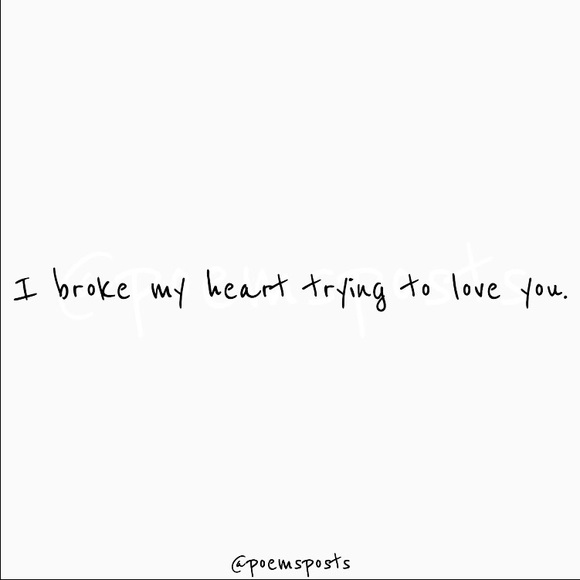 I broke my heart trying to love you.
@poemsposts
@poemsposts